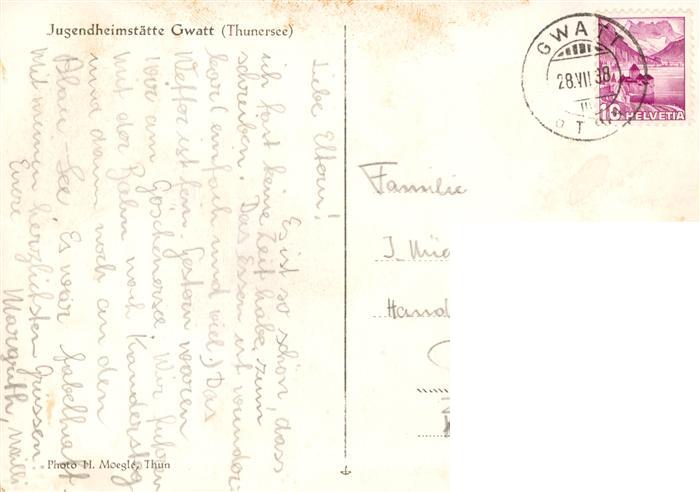 Jugendheimstätte Gwatt (Thunersee)
Liebe Eltern!
Es ist so schön, dass
ich fast keine Zeit habe, zum
schreiben. Das Essen ist wunder-
bar (einfach und viel) Das
Wetter ist fein. Gestern waren
wir am Öschenensee. Wir fuhren
mit der Bahn nach Kandersteg
und dann noch an den
Blau-See. Es war fabelhaft
Mit meinen herzlichsten Grüssen
Eure
Margrith,
Photo H. Moegle, Thun
GWATT
28.VII.38
10 HELVETIA
Familie
J.
Hand